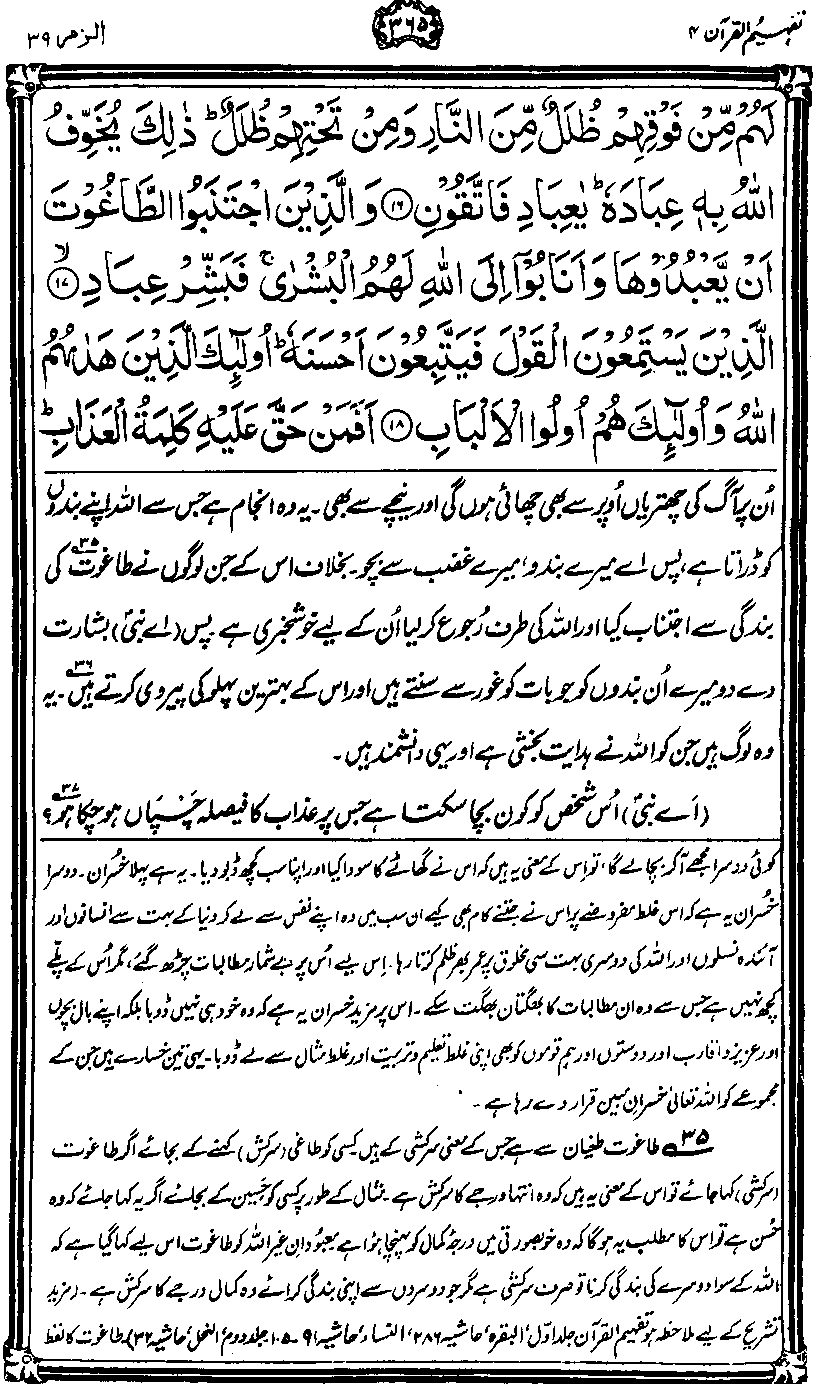 تفہیم القرآن ۴
۳۶۵
الزمر ۳۹
لَهُمْ مِّنْ فَوْقِهِمْ ظُلَلٌ مِّنَ النَّارِ وَمِنْ تَحْتِهِمْ ظُلَلٌ ؕ ذٰلِكَ يُخَوِّفُ
اللّٰهُ بِهٖ عِبَادَهٗ ؕ يٰعِبَادِ فَاتَّقُوْنِ ﴿۱۶﴾ وَالَّذِيْنَ اجْتَنَبُوا الطَّاغُوْتَ
اَنْ يَّعْبُدُوْهَا وَاَنَابُوْۤا اِلَى اللّٰهِ لَهُمُ الْبُشْرٰى ۚ فَبَشِّرْ عِبَادِ ﴿۱۷﴾ ۙ
الَّذِيْنَ يَسْتَمِعُوْنَ الْقَوْلَ فَيَتَّبِعُوْنَ اَحْسَنَهٗ ؕ اُولٰٓئِكَ الَّذِيْنَ هَدٰىهُمُ
اللّٰهُ وَاُولٰٓئِكَ هُمْ اُولُوا الْاَلْبَابِ ﴿۱۸﴾ اَفَمَنْ حَقَّ عَلَيْهِ كَلِمَةُ الْعَذَابِ ؕ
اُن پر آگ کی چھتریاں اُوپر سے بھی چھائی ہوں گی اور نیچے سے بھی۔ یہ وہ انجام ہے جس سے اللہ اپنے بندوں
کو ڈراتا ہے، پس اے میرے بندو، میرے غضب سے بچو۔ بخلاف اس کے جن لوگوں نے طاغوت۳۵ کی
بندگی سے اجتناب کیا اور اللہ کی طرف رُجوع کر لیا اُن کے لیے خوشخبری ہے۔ پس (اے نبیؐ) بشارت
دے دو میرے اُن بندوں کو جو بات کو غور سے سنتے ہیں اور اس کے بہترین پہلو کی پیروی کرتے ہیں۳۶۔ یہ
وہ لوگ ہیں جن کو اللہ نے ہدایت بخشی ہے اور یہی دانشمند ہیں۔
(اَے نبیؐ) اُس شخص کو کون بچا سکتا ہے جس پر عذاب کا فیصلہ چسپاں ہو چکا ہو۳۷؟
کوئی دوسرا مجھے آکر بچا لے گا، تو اِس کے معنی یہ ہیں کہ اس نے گھاٹے کا سودا کیا اور اپنا سب کچھ ڈبو دیا۔ یہ ہے پہلا خُسران۔ دوسرا
خُسران یہ ہے کہ اس غلط مفروضے پر اس نے جتنے کام بھی کیے ان سب میں وہ اپنے نفس سے لے کر دنیا کے بہت سے انسانوں اور
آئندہ نسلوں اور اللہ کی دوسری بہت سی مخلوق پر عمر بھر ظلم کرتا رہا۔ اِس لیے اُس پر بے شمار مطالبات چڑھ گئے، مگر اُس کے پلّے
کچھ نہیں ہے جس سے وہ ان مطالبات کا بھگتان بھگت سکے۔ اس پر مزید خسران یہ ہے کہ وہ خود ہی نہیں ڈوبا بلکہ اپنے بال بچوں
اور عزیز و اقارب اور دوستوں اور ہم قوموں کو بھی اپنی غلط تعلیم و تربیت اور غلط مثال سے لے ڈوبا۔ یہی تین خسارے ہیں جن کے
مجموعے کو اللہ تعالیٰ خسرانِ مبین قرار دے رہا ہے۔
۳۵؎ طاغوت طغیان سے ہے جس کے معنی سرکشی کے ہیں۔ کسی کو طاغی (سرکش) کہنے کے بجائے اگر طاغوت
(سرکشی) کہا جائے تو اس کے معنی یہ ہیں کہ وہ انتہا درجے کا سرکش ہے۔ مثال کے طور پر کسی کو حَسین کے بجائے اگر یہ کہا جائے کہ وہ
حُسن ہے تو اس کا مطلب یہ ہوگا کہ وہ خوبصورتی میں درجۂ کمال کو پہنچا ہوا ہے۔ معبودانِ غیر اللہ کو طاغوت اس لیے کہا گیا ہے کہ
اللہ کے سوا دوسرے کی بندگی کرنا تو صرف سرکشی ہے مگر جو دوسروں سے اپنی بندگی کرائے وہ کمال درجے کا سرکش ہے۔ (مزید
تشریح کے لیے ملاحظہ ہو تفہیم القرآن جلد اوّل، البقرہ، حاشیہ ۲۸۶، النساء، حاشیہ ۹۱۔۱۰۵، جلد دوم، النحل، حاشیہ ۳۲)۔ طاغوت کا لفظ